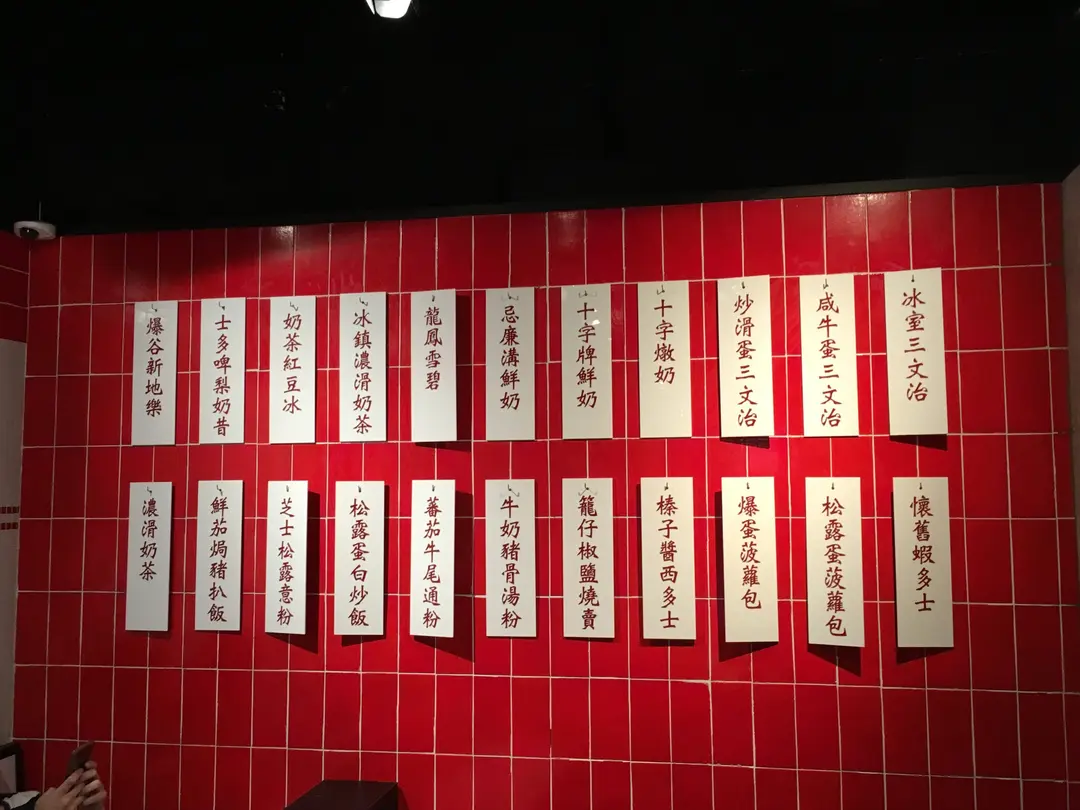 冰室三文治
咸牛蛋三文治
炒滑蛋三文治
十字燉奶
十字牌鮮奶
忌廉溝鮮奶
龍鳳雪碧
冰鎮濃滑奶茶
奶茶紅豆冰
士多啤梨奶昔
爆谷新地樂
懷舊蝦多士
松露蛋菠蘿包
爆蛋菠蘿包
榛子醬西多士
籠仔椒鹽燒賣
牛奶豬骨湯粉
蕃茄牛尾通粉
松露蛋白炒飯
芝士松露意粉
鮮茄焗豬扒飯
濃滑奶茶